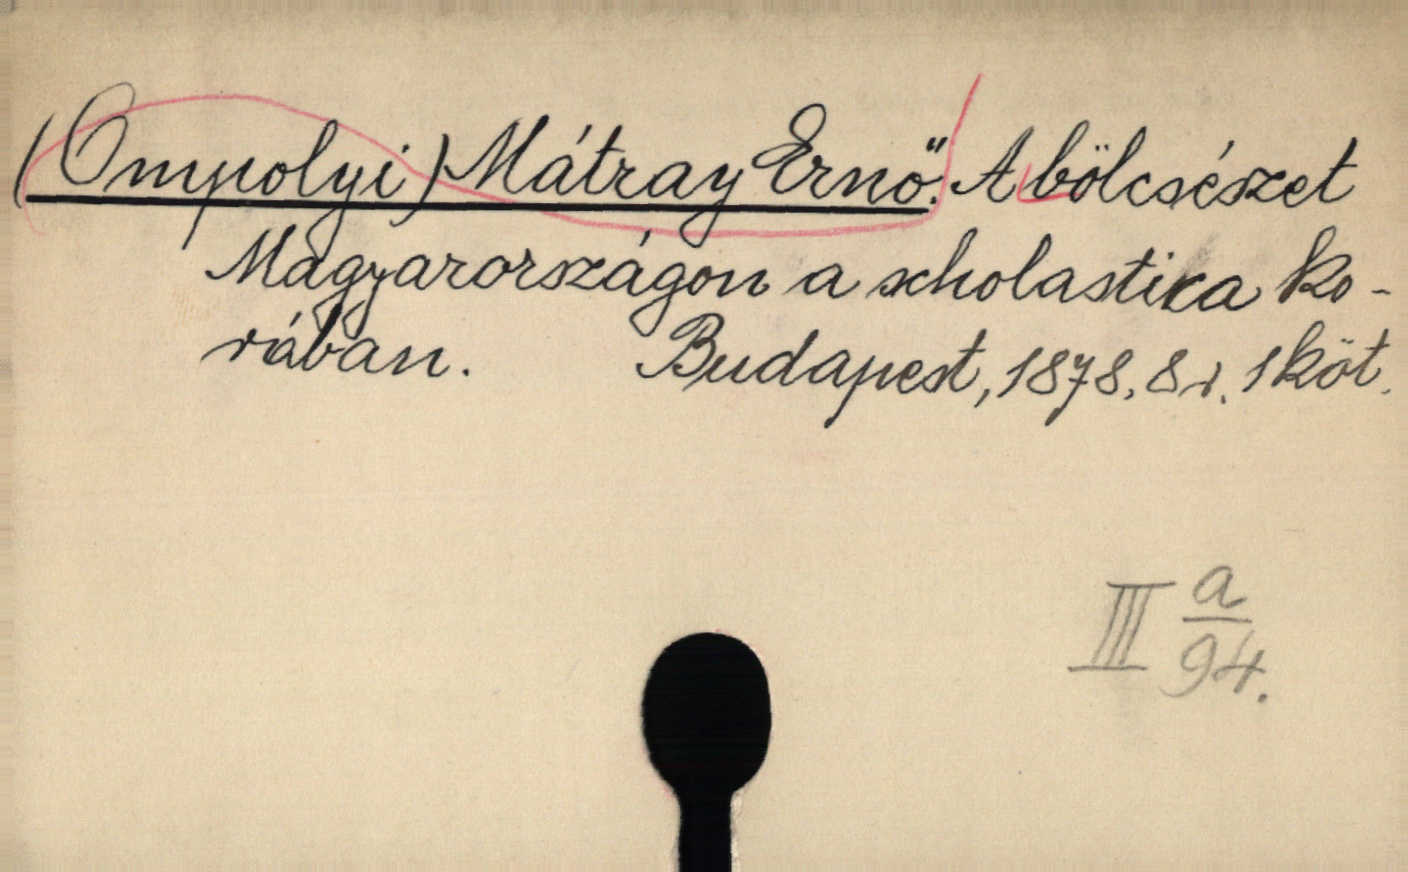 (Ompolyi) Mátray Ernő. A bölcsészet
Magyarországon a scholastika ko-
rában. Budapest, 1878. 8r. 1 köt.
III a/94.